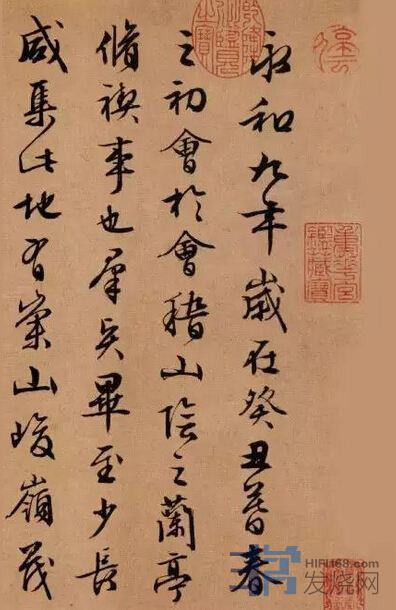 永和九年歲在癸丑暮春
之初會於會稽山陰之蘭亭
脩禊事也羣賢畢至少長
咸集此地有崇山峻嶺茂
重華宮
鑑藏寶
HIFI168.com
发烧网